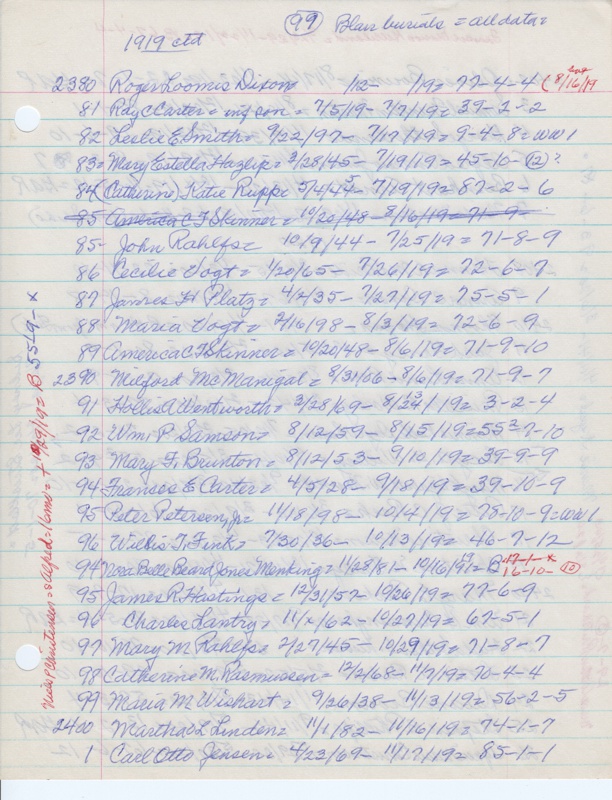 (99) Blair burials = all data =
1919 ctd
2380 Roger Loomis Dixon /12- /19 = 77-4-4 (8/16/19
81 Ray C Carter = inf son = 7/5/19 - 7/7/19 = 39-2-2
82 Leslie E. Smith = 9/22/97 - 7/17/19 = 9-4-8 = WW1
83 = Mary Estella Hazlip = 3/28/45 - 7/19/19 = 45-10-(12)?
84 (Catherine) Katie Ruppe 5/4/445 - 7/19/19 = 87-2-6
85 America C F Skinner = 10/20/48 - 8/16/19 = 71-9-
85- John Rahlfs = 10/9/44 - 7/25/19 = 71-8-9
86 Cecilie Vogt = 1/20/65 - 7/26/19 = 72-6-7
87 James H Platz = 4/2/35 - 7/27/19 = 75-5-1
88 Maria Vogt = 2/16/98 - 8/3/19 = 72-6-9
89 America C F Skinner = 10/20/48 - 8/6/19 = 71-9-10
2390 Milford McManigal = 8/31/06 - 8/6/19 = 71-9-7
91 Hollis A Wentworth = 3/28/69 - 8/ /19 = 3-2-4
92 Wm. P Samson = 8/12/59 - 8/15/19 = 55 -7-10
93 Mary F. Brunton = 8/12/53 - 9/10/19 = 39-9-9
94 Frances E Carter = 4/5/28 - 9/18/19 = 39-10-9
95 Peter Petersen, Jr = 11/18/98 - 10/4/19 = 78-10-9 = WW1
96 Willis T. Fink = 7/30/36 - 10/13/19 = 46-7-12
94 Nora Belle Beard Jones Menking = 11/28/81 - 10/16/19 = B 17-1-x
16-10- (10)
95 James R. Hastings = 12/31/57 - 10/26/19 = 77-6-9
96 Charles Lantry = 11/ /62 - 10/27/19 = 67-5-1
97 Mary M Rahlfs = 2/27/45 - 10/29/19 = 71-8-7
98 Catherine M. Rasmussen = 12/2/68 - 11/7/19 = 70-4-4
99 Maria M Wishart = 9/26/38 - 11/13/19 = 56-2-5
2400 Martha L Linden = 11/1/82 - 11/16/19 = 74-1-7
1 Carl Otto Jensen = 4/23/69 - 11/17/19 = 85-1-1
Niels P Christensen = s Alfred = 16 mo = + /29/19 = B 5549 - x